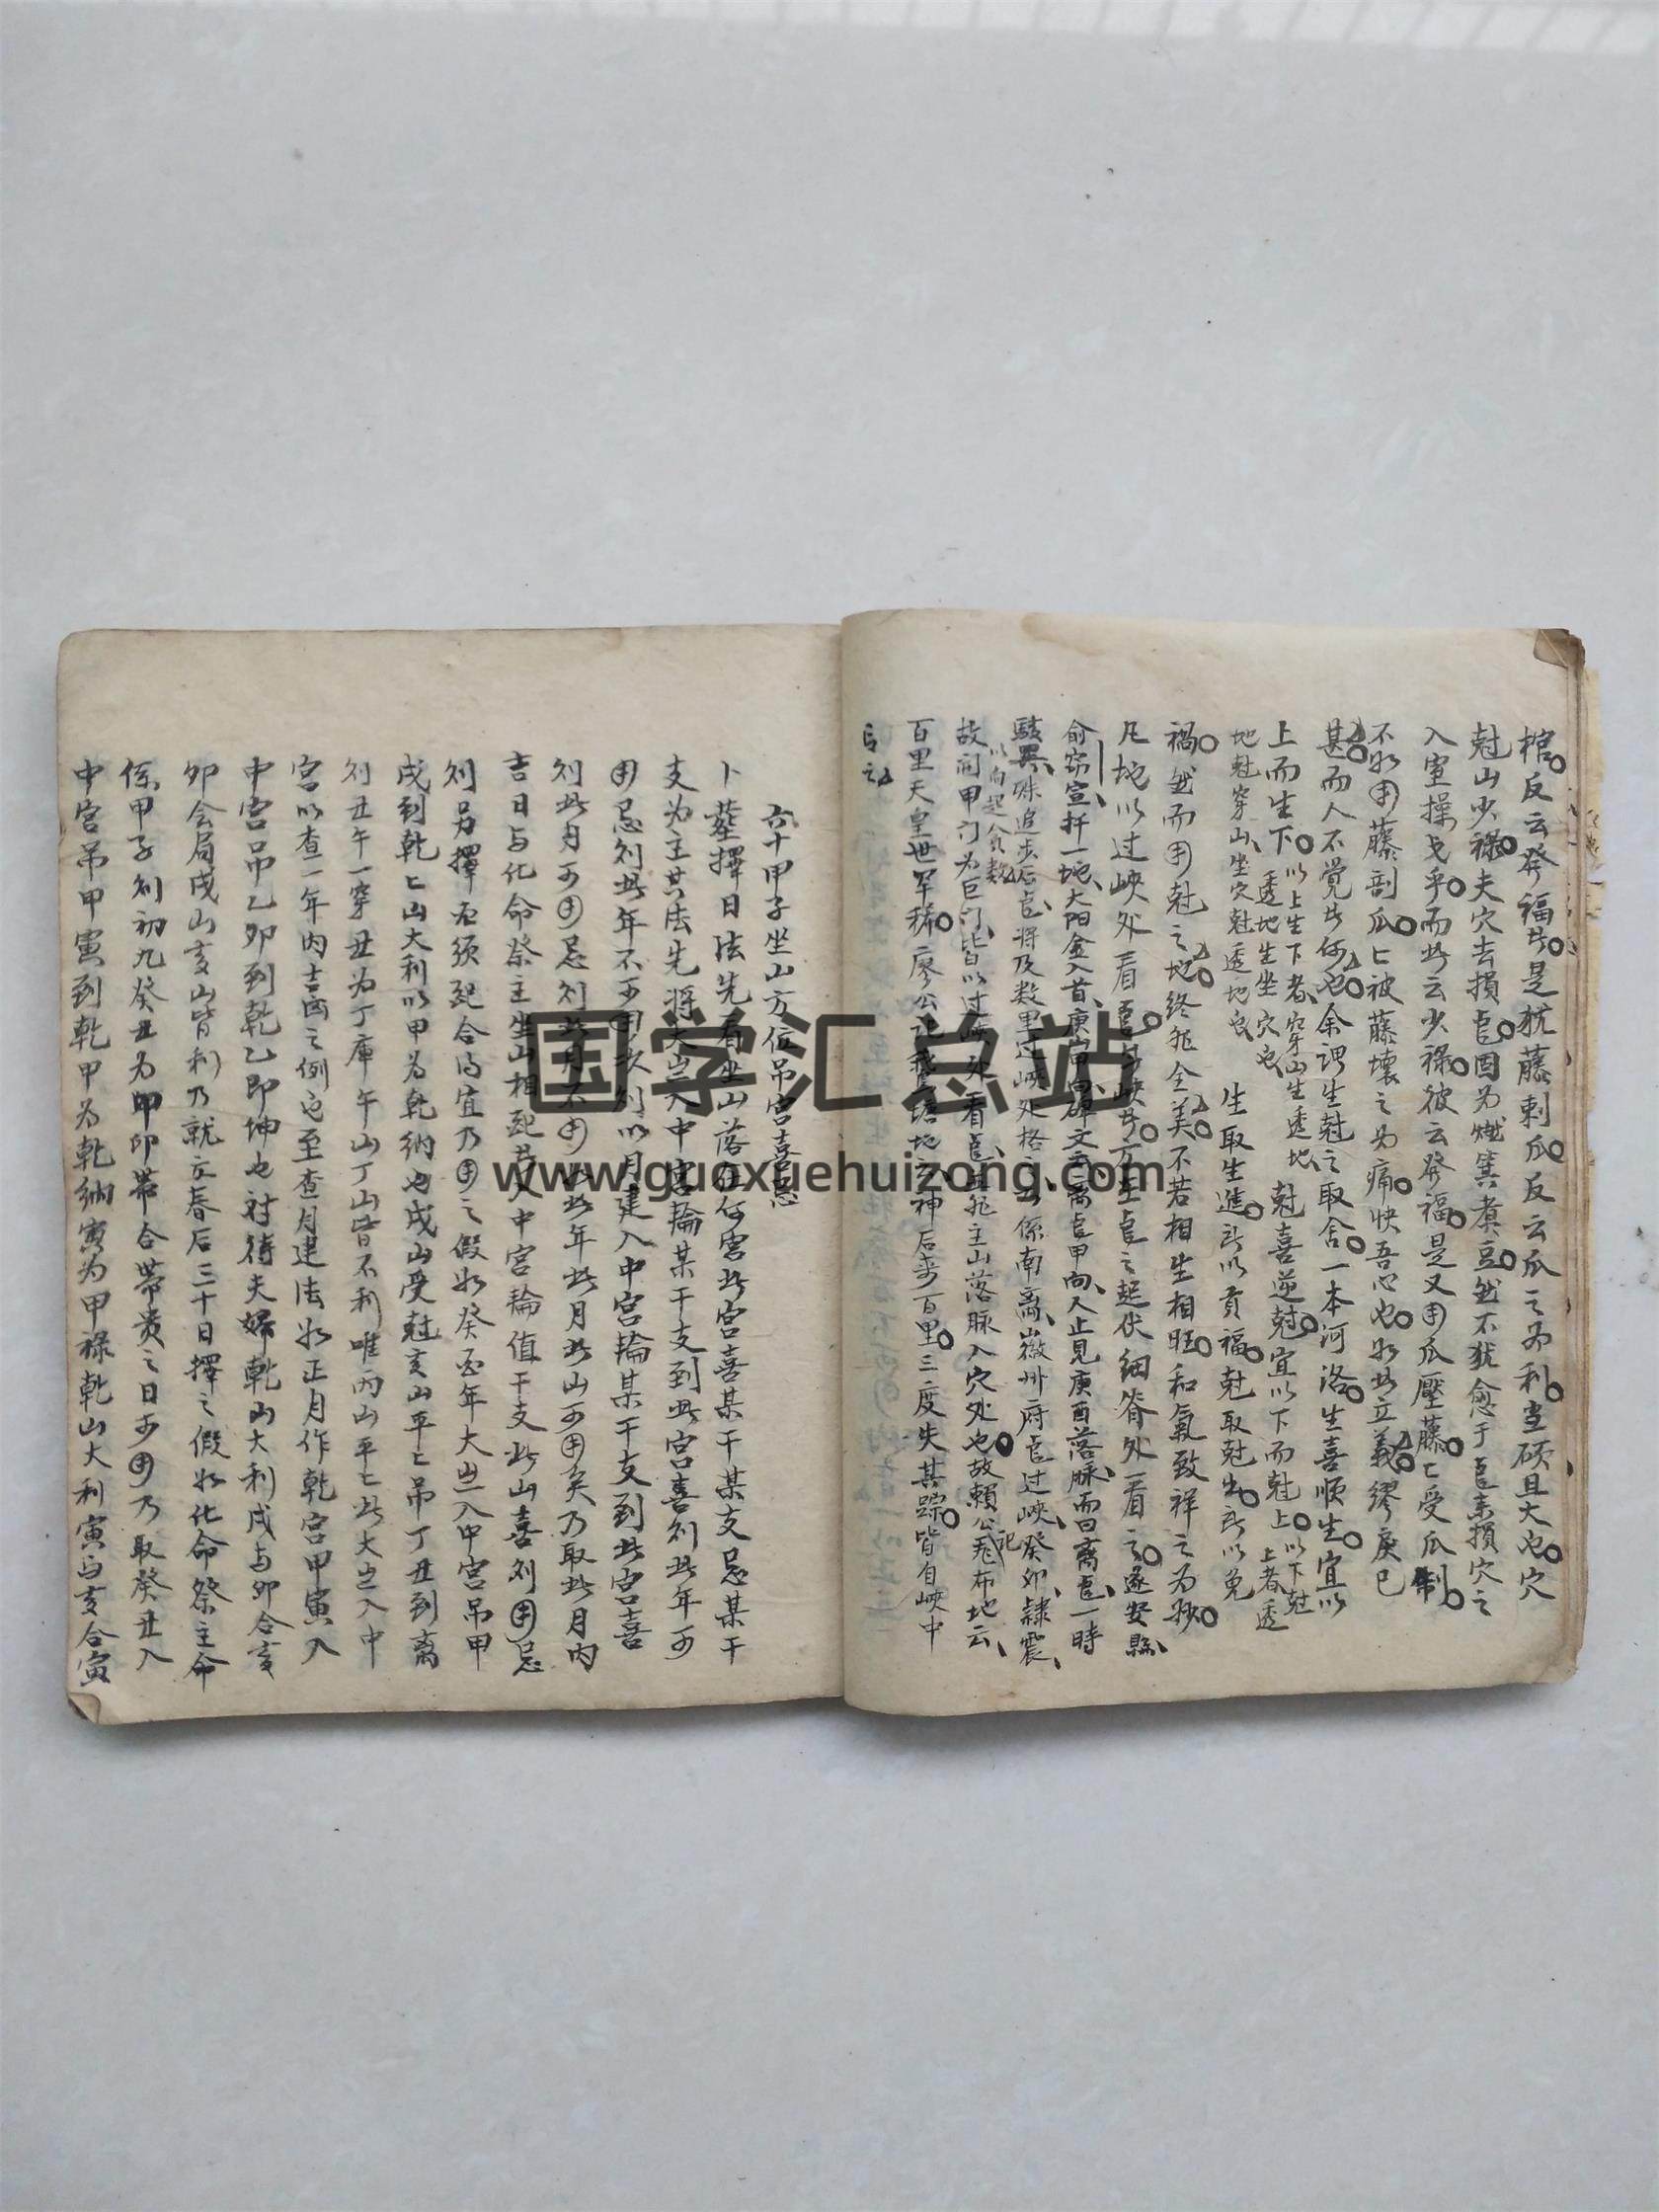 棺反云發福此是犹藤刺瓜反云瓜之为利岂硕且大也穴
尅山少祿夫穴去損竜固为燃箕煮豆然不犹愈于竜來損穴之
入室操戈乎而此云少祿彼云發福是又用瓜壓藤藤受瓜制
不如用藤剖瓜瓜被藤壞之为痛快吾心也如此立義繆戾已
甚而人不覺此何也余謂生尅之取舍一本河洛生喜順生宜以
上而生下以上生下者穿山生透地透地生坐穴也尅喜逆尅宜以下而尅上以下尅上者透
地尅穿山坐穴尅透地也生取生進所以貢福尅取尅出所以免
禍然而用尅之地終非全美不若相生相旺和氣致祥之为妙
凡地以过峽处看竜峽此方主竜之起伏細脊处看之遂安縣
俞宣扦一地大阳金入首庚甲向碑文云离竜甲向人止見庚酉落脉而曰离竜一時
駭異殊追去后竜将及数里过峽处格之係南离徽州府竜过峽癸卯隸震
以向起分数
故前甲门为巨门皆以过峽处看竜非主山落脉入穴处也故賴公布地云
記
百里天皇世罕稀廖公記地云神后来百里三度失其踪皆自峽中
六十甲子坐山方位吊宮喜忌
卜葬擇日法先看坐山落在何宮此宮喜某干某支忌某干
支为主其法先将太岁入中宮輪某干支到此宮喜則此年可
用忌則此年不可用次則以月建入中宮輪某干支到此宮喜
則此月可用忌則此月不可用此年此月此山可用矣乃取此月内
吉日与化命祭主坐山相配者入中宮輪值干支此山喜則用忌
則另擇召须配合得宜乃用之假如癸酉年太岁入中宮吊甲
戌到乾乾山大利以甲为乾納也戌山受尅亥山平平吊丁丑到离
則丑午一穿丑为丁庫午山丁山皆不利唯丙山平平此太岁入中
宮以查一年内吉凶之例也至查月建法如正月作乾宮甲寅入
中宮吊乙卯到乾乙即坤也对待夫婦乾山大利戌与卯合亥
卯会局戌山亥山皆利乃就立春后三十日擇之假如化命祭主命
係甲子則初九癸丑为印印帶合帶貴之日可用乃取癸丑入
中宮吊甲寅到乾甲为乾納寅为甲祿乾山大利寅与亥合寅
国学汇总站
www.guoxuehuizong.com